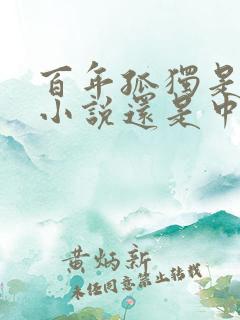 百年孤獨是
小說還是中
黃炳新
未經同意禁止轉載